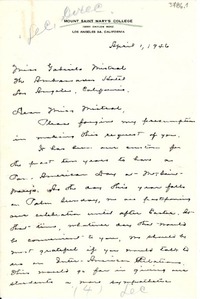 MOUNT SAINT MARY'S COLLEGE
LOS ANGELES 24, CALIFORNIA
April 1, 1946
Miss Gabriela Mistral
The Ambassador Hotel
Los Angeles, California.
Dear Miss Mistral,
Please forgive my presumption
in making this request of you.
It has been our custom for
the past ten years to have a
Pan American Day at
As the day this year falls
on Palm Sunday, we are postponing
our celebration until after Easter.
time, whatever day this would
be convenient to you, we should be
most grateful if you would talk to
us on Inter-American Relations.
This would go far in giving our
students a more sympathetic